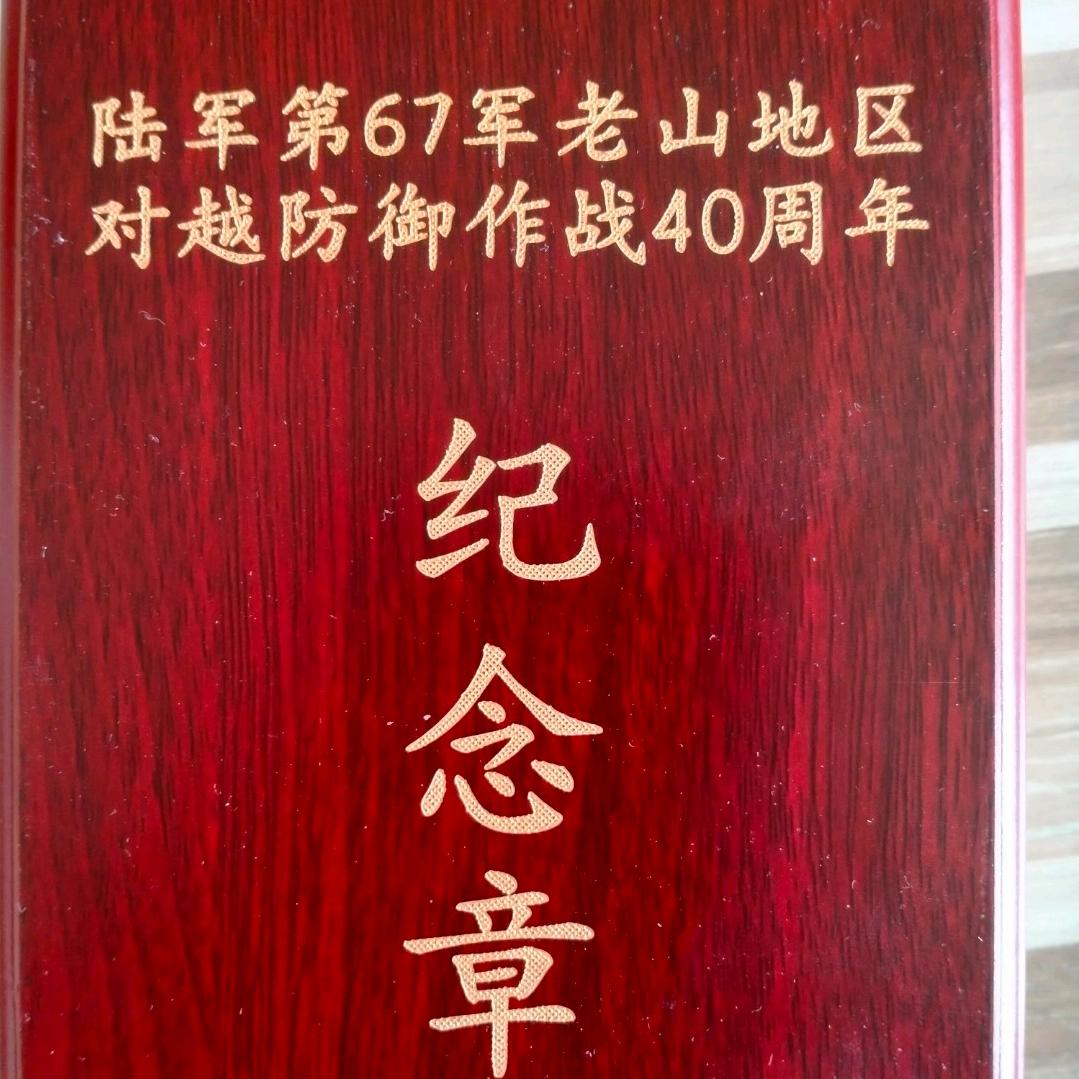 陆军第67军老山地区
对越防御作战40周年
纪
念
章